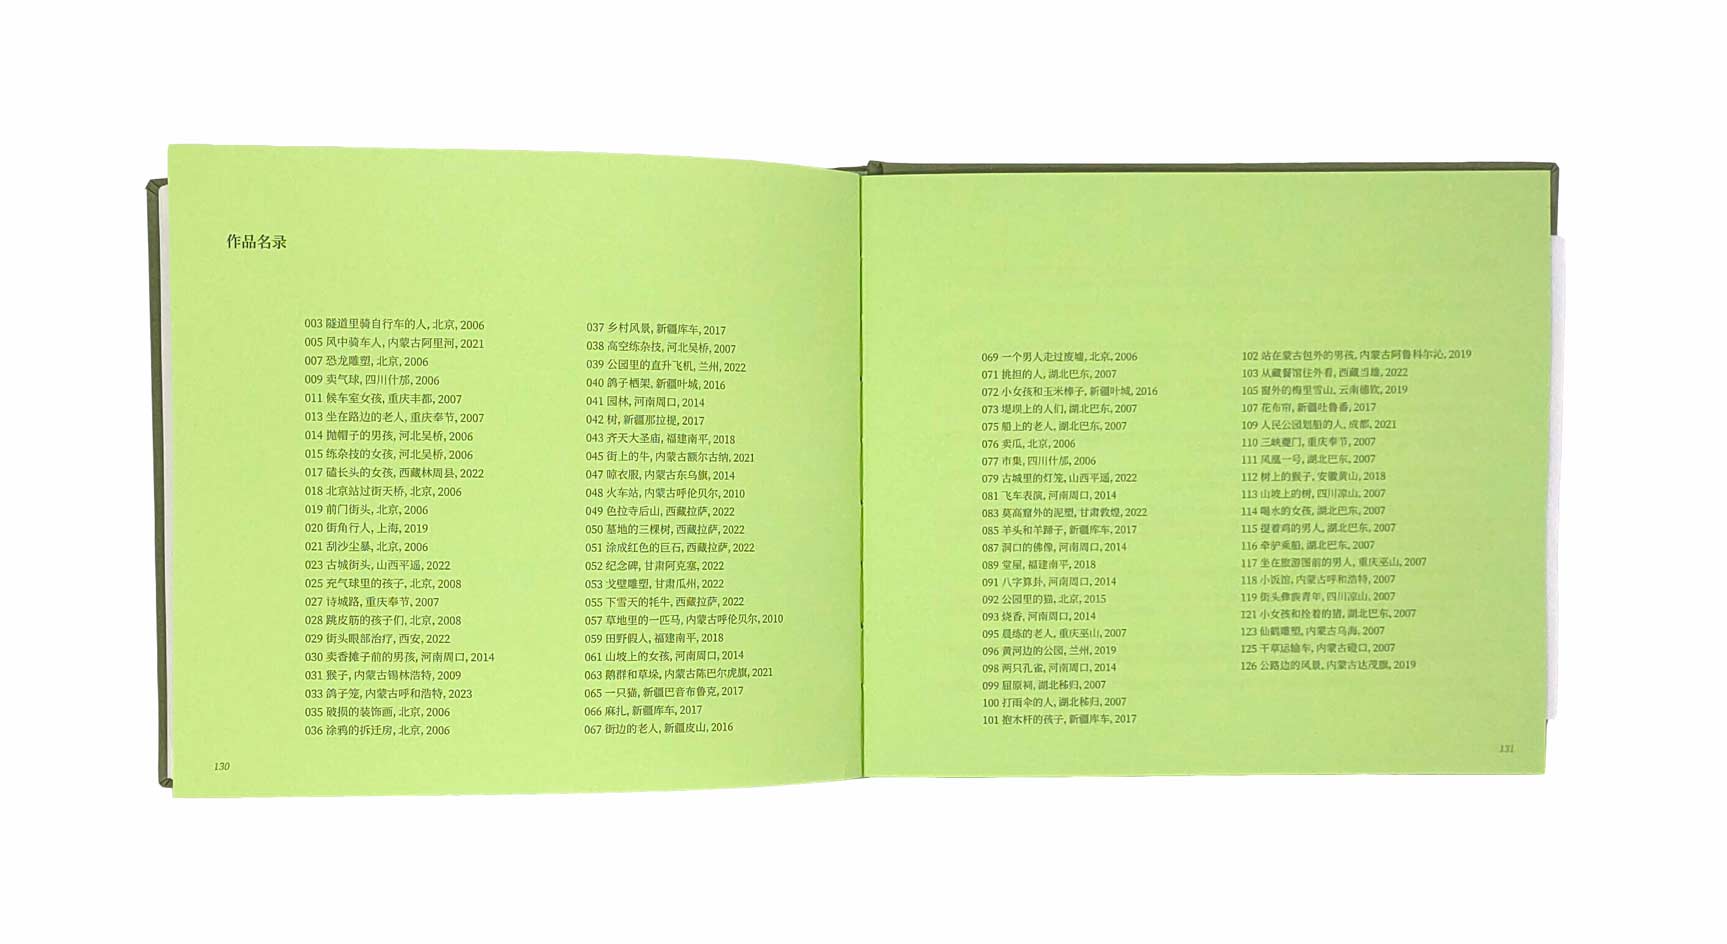 作品名录
003 隧道里骑自行车的人, 北京, 2006
005 风中骑车人, 内蒙古阿里河, 2021
007 恐龙雕塑, 北京, 2006
009 卖气球, 四川什邡, 2006
011 候车室女孩, 重庆丰都, 2007
013 坐在路边的老人, 重庆奉节, 2007
014 抛帽子的男孩, 河北吴桥, 2006
015 练杂技的女孩, 河北吴桥, 2006
017 磕长头的女孩, 西藏林周县, 2022
018 北京站过街天桥, 北京, 2006
019 前门街头, 北京, 2006
020 街角行人, 上海, 2019
021 刮沙尘暴, 北京, 2006
023 古城街头, 山西平遥, 2022
025 充气球里的孩子, 北京, 2008
027 诗城路, 重庆奉节, 2007
028 跳皮筋的孩子们, 北京, 2008
029 街头眼部治疗, 西安, 2022
030 卖香摊子前的男孩, 河南周口, 2014
031 猴子, 内蒙古锡林浩特, 2009
033 鸽子笼, 内蒙古呼和浩特, 2023
035 破损的装饰画, 北京, 2006
036 涂鸦的拆迁房, 北京, 2006
037 乡村风景, 新疆库车, 2017
038 高空练杂技, 河北吴桥, 2007
039 公园里的直升飞机, 兰州, 2022
040 鸽子栖架, 新疆叶城, 2016
041 园林, 河南周口, 2014
042 树, 新疆那拉提, 2017
043 齐天大圣庙, 福建南平, 2018
045 街上的牛, 内蒙古额尔古纳, 2021
047 晾衣服, 内蒙古东乌旗, 2014
048 火车站, 内蒙古呼伦贝尔, 2010
049 色拉寺后山, 西藏拉萨, 2022
050 墓地的三棵树, 西藏拉萨, 2022
051 涂成红色的巨石, 西藏拉萨, 2022
052 纪念碑, 甘肃阿克塞, 2022
053 戈壁雕塑, 甘肃瓜州, 2022
055 下雪天的牦牛, 西藏拉萨, 2022
057 草地里的一匹马, 内蒙古呼伦贝尔, 2010
059 田野假人, 福建南平, 2018
061 山坡上的女孩, 河南周口, 2014
063 鹅群和草垛, 内蒙古陈巴尔虎旗, 2021
065 一只猫, 新疆巴音布鲁克, 2017
066 麻扎, 新疆库车, 2017
067 街边的老人, 新疆皮山, 2016
130
069 一个男人走过废墟, 北京, 2006
071 挑担的人, 湖北巴东, 2007
072 小女孩和玉米棒子, 新疆叶城, 2016
073 堤坝上的人们, 湖北巴东, 2007
075 船上的老人, 湖北巴东, 2007
076 卖瓜, 北京, 2006
077 市集, 四川什邡, 2006
079 古城里的灯笼, 山西平遥, 2022
081 飞车表演, 河南周口, 2014
083 莫高窟外的泥塑, 甘肃敦煌, 2022
085 羊头和羊蹄子, 新疆库车, 2017
087 洞口的佛像, 河南周口, 2014
089 堂屋, 福建南平, 2018
091 八字算卦, 河南周口, 2014
092 公园里的猫, 北京, 2015
093 烧香, 河南周口, 2014
095 晨练的老人, 重庆巫山, 2007
096 黄河边的公园, 兰州, 2019
098 两只孔雀, 河南周口, 2014
099 屈原祠, 湖北秭归, 2007
100 打雨伞的人, 湖北秭归, 2007
101 抱木杆的孩子, 新疆库车, 2017
102 站在蒙古包外的男孩, 内蒙古阿鲁科尔沁, 2019
103 从藏餐馆往外看, 西藏当雄, 2022
105 窗外的梅里雪山, 云南德钦, 2019
107 花布帘, 新疆吐鲁番, 2017
109 人民公园划船的人, 成都, 2021
110 三峡夔门, 重庆奉节, 2007
111 凤凰一号, 湖北巴东, 2007
112 树上的猴子, 安徽黄山, 2018
113 山坡上的树, 四川凉山, 2007
114 喝水的女孩, 湖北巴东, 2007
115 提着鸡的男人, 湖北巴东, 2007
116 牵驴乘船, 湖北巴东, 2007
117 坐在旅游图前的男人, 重庆巫山, 2007
118 小饭馆, 内蒙古呼和浩特, 2007
119 街头彝族青年, 四川凉山, 2007
121 小女孩和拴着的猪, 湖北巴东, 2007
123 仙鹤雕塑, 内蒙古乌海, 2007
125 干草运输车, 内蒙古磴口, 2007
126 公路边的风景, 内蒙古达茂旗, 2019
131